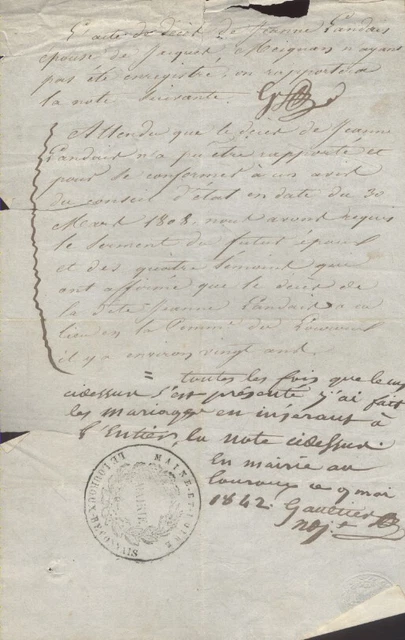 L'acte de décès de Jeanne Landais
épouse de Jacques Meignan n'ayant
pas été enregistré, on rapportera
la note suivante.
Attendu que le décès de Jeanne
Landais n'a pu être rapporté et
pour se conformer à un avis
du conseil d'état en date du 30
Mars 1808, nous avons reçu
le serment du futur époux
et des quatre témoins qui
ont affirmé que le décès de
la dite Jeanne Landais a eu
lieu en la commune du Louroux
il y a environ vingt ans.
= toutes les fois que le cas
cidessus s'est présenté j'ai fait
les mariages en insérant à
l'Entier, la note cidessus.
En mairie au
Louroux ce 9 mai
1842. Gaultier
MAINE-ET-LOIRE
MAIRIE